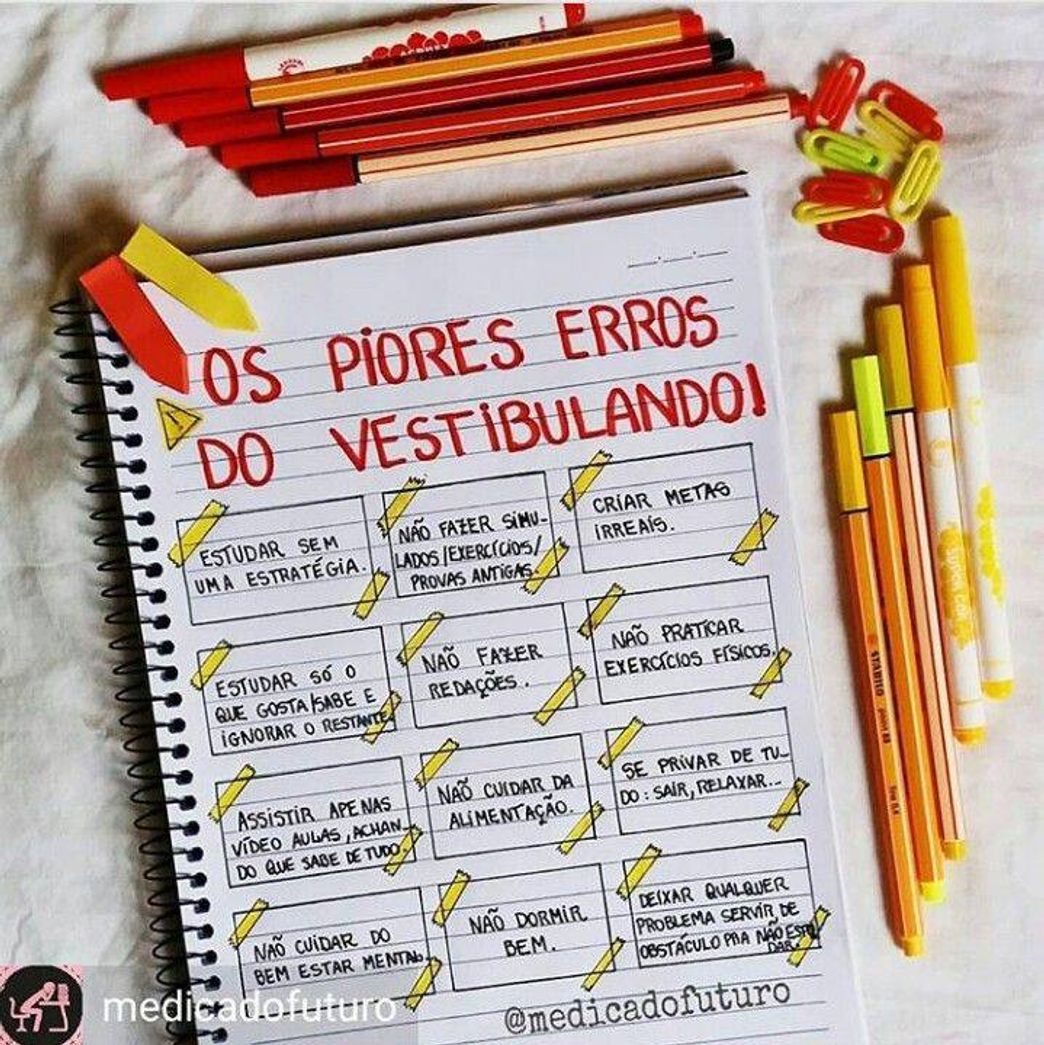 OS PIORES ERROS
DO VESTIBULANDO!
ESTUDAR SEM
UMA ESTRATÉGIA.
NÃO FAZER SIMU-
LADOS/EXERCÍCIOS/
PROVAS ANTIGAS.
CRIAR METAS
IRREAIS.
ESTUDAR SÓ O
QUE GOSTA/SABE E
IGNORAR O RESTANTE.
NÃO FAZER
REDAÇÕES.
NÃO PRATICAR
EXERCÍCIOS FÍSICOS.
ASSISTIR APENAS
VÍDEO AULAS, ACHAN-
DO QUE SABE DE TUDO.
NÃO CUIDAR DA
ALIMENTAÇÃO.
SE PRIVAR DE TU-
DO: SAIR, RELAXAR...
NÃO CUIDAR DO
BEM ESTAR MENTAL.
NÃO DORMIR
BEM.
DEIXAR QUALQUER
PROBLEMA SERVIR DE
OBSTÁCULO PRA NÃO ESTU-
DAR.
@medicadofuturo
medicadofuturo
STABILO